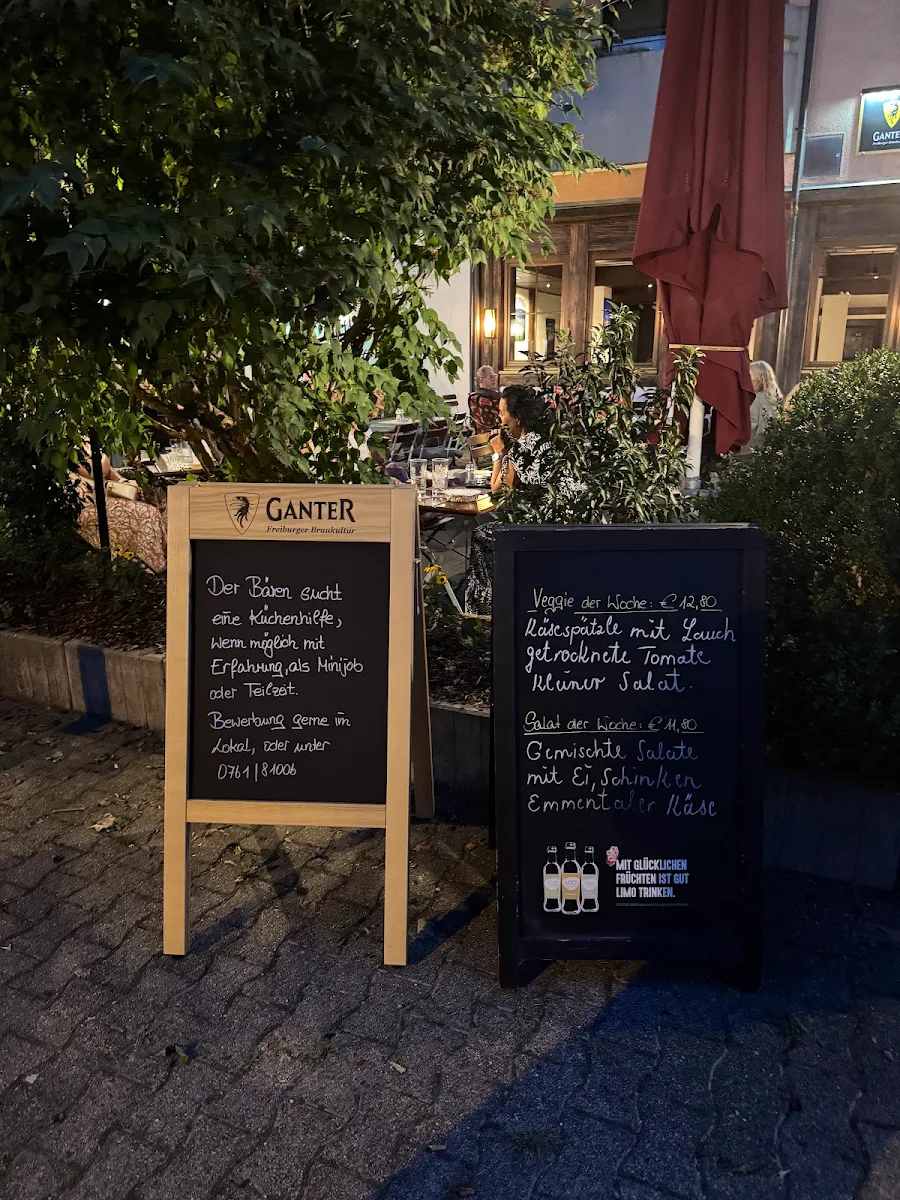 GANTER
GANTER
Freiburger Braukultur
Der Bären sucht
eine Küchenhilfe,
wenn möglich mit
Erfahrung, als Minijob
oder Teilzeit.
Bewerbung gerne im
Lokal, oder unter
0761 | 81006
Veggie der Woche: € 12,80
Käsespätzle mit Lauch
getrocknete Tomate
kleiner Salat.
Salat der Woche: € 11,80
Gemischte Salate
mit Ei, Schinken
Emmentaler Käse
MIT GLÜCKLICHEN
FRÜCHTEN IST GUT
LIMO TRINKEN.